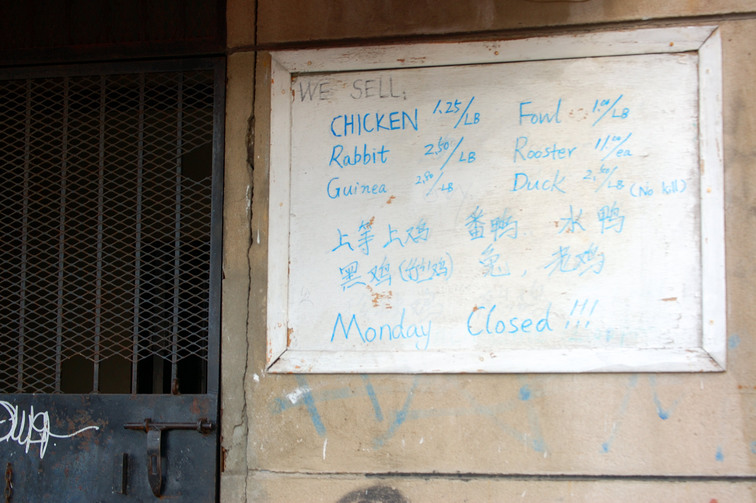 WE SELL:
CHICKEN 1.25/LB Fowl 1.00/LB
Rabbit 2.50/LB Rooster 11.00/ea
Guinea 2.50/LB Duck 2.50/LB (No kill)
上等上鸡 番鸭 水鸭
黑鸡( 鸡) 兔, 老鸡
Monday Closed !!!